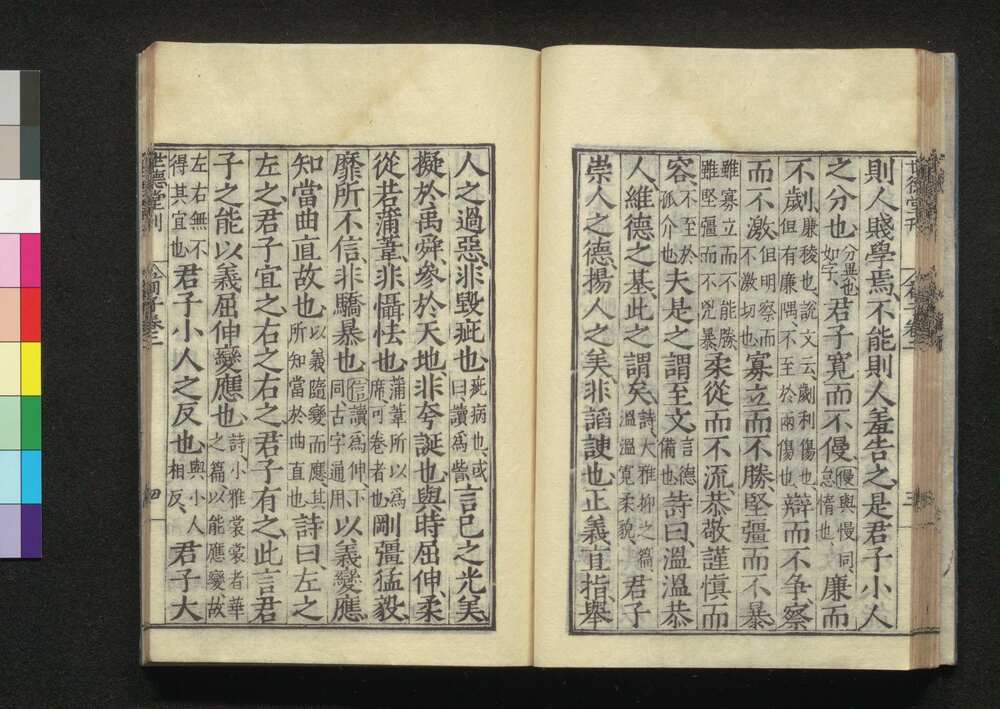 則人賤學焉、不能則人羞告之、是君子小人
之分也、分異也如字、君子寬而不僈、僈與慢同、怠惰也、廉而
不劌、廉稜也、說文云劌利傷也、但有廉隅、不至於兩傷也、辯而不争、察
而不激、但明察而不激切也、寡立而不勝、堅彊而不暴、
雖寡立而不能勝雖堅彊而不兇暴柔從而不流、恭敬謹慎而
容、不至於孤介也夫是之謂至文、言德備也詩曰、溫溫恭
人維德之基、此之謂矣、詩、大雅抑之篇溫溫寬柔貌、君子
崇人之德、揚人之美、非謟諛也、正義直指、舉
人之過惡、非毀疵也、疵病也、或曰、讀爲訾、言己之光美、
擬於禹舜、參於天地、非夸誕也、與時屈伸、柔
從若蒲葦、非懾怯也、蒲葦所以爲席、可卷者也剛彊猛毅、
靡所不信、非驕暴也、信讀爲伸、下同古字通用、以義變應、
知當曲直故也、以義隨變而應、其所知當於曲直也詩曰、左之
左之、君子宜之、右之右之、君子有之、此言君
子之能以義屈伸變應也、詩、小雅裳裳者華之篇以能應變故
左右無不得其宜也君子小人之反也、與小人相反、君子大
世德堂刊
荀子卷二
四
三